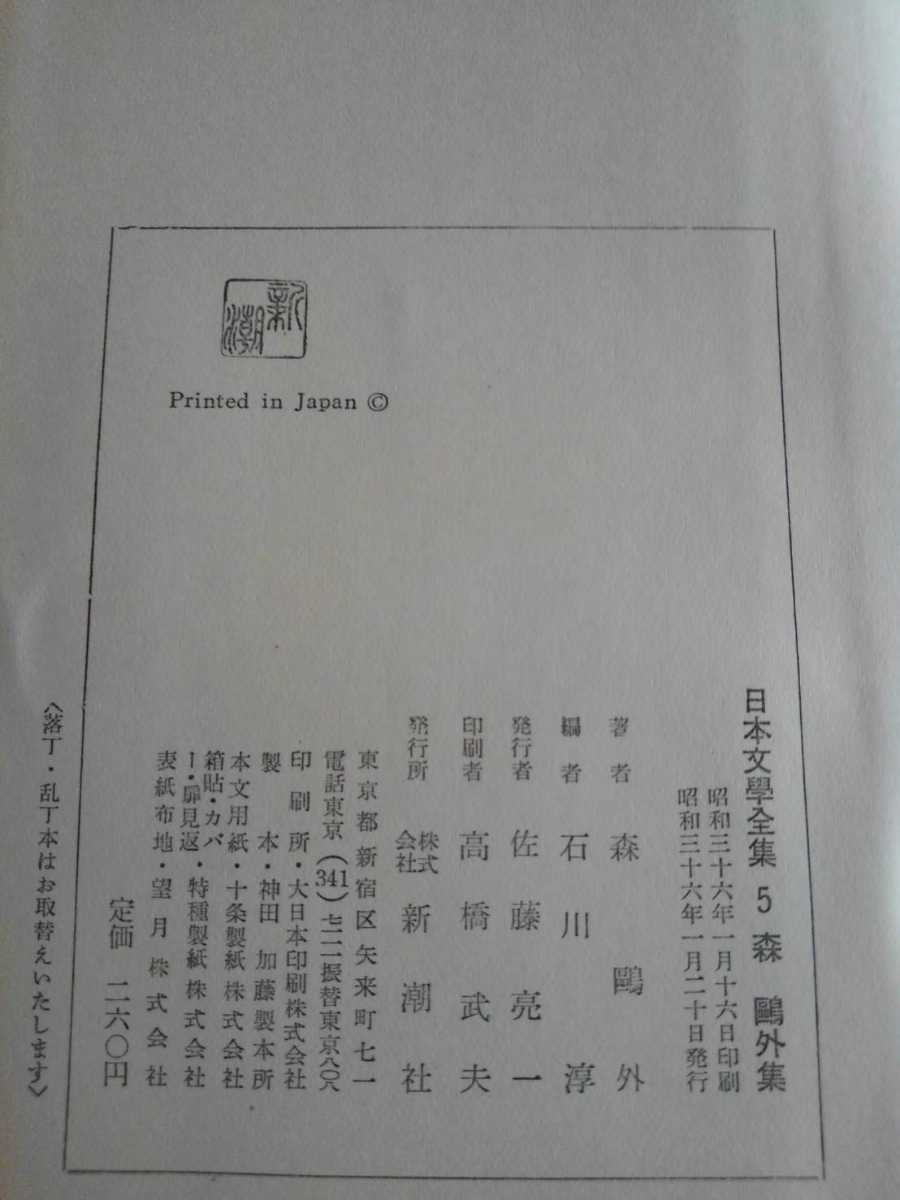 日本文學全集 5 森 鷗外集
昭和三十六年一月十六日印刷
昭和三十六年一月二十日発行
著者 森鷗外
編者 石川淳
発行者 佐藤亮一
印刷者 高橋武夫
発行所 株式会社 新潮社
東京都新宿区矢来町七一
印刷所・大日本印刷株式会社
製本・神田 加藤製本所
本文用紙・十条製紙株式会社
箱貼・カバー・扉見返・特種製紙株式会社
表紙布地・望月株式会社
定価 二六〇円
新潮
Printed in Japan ©
〈落丁・乱丁本はお取替えいたします〉